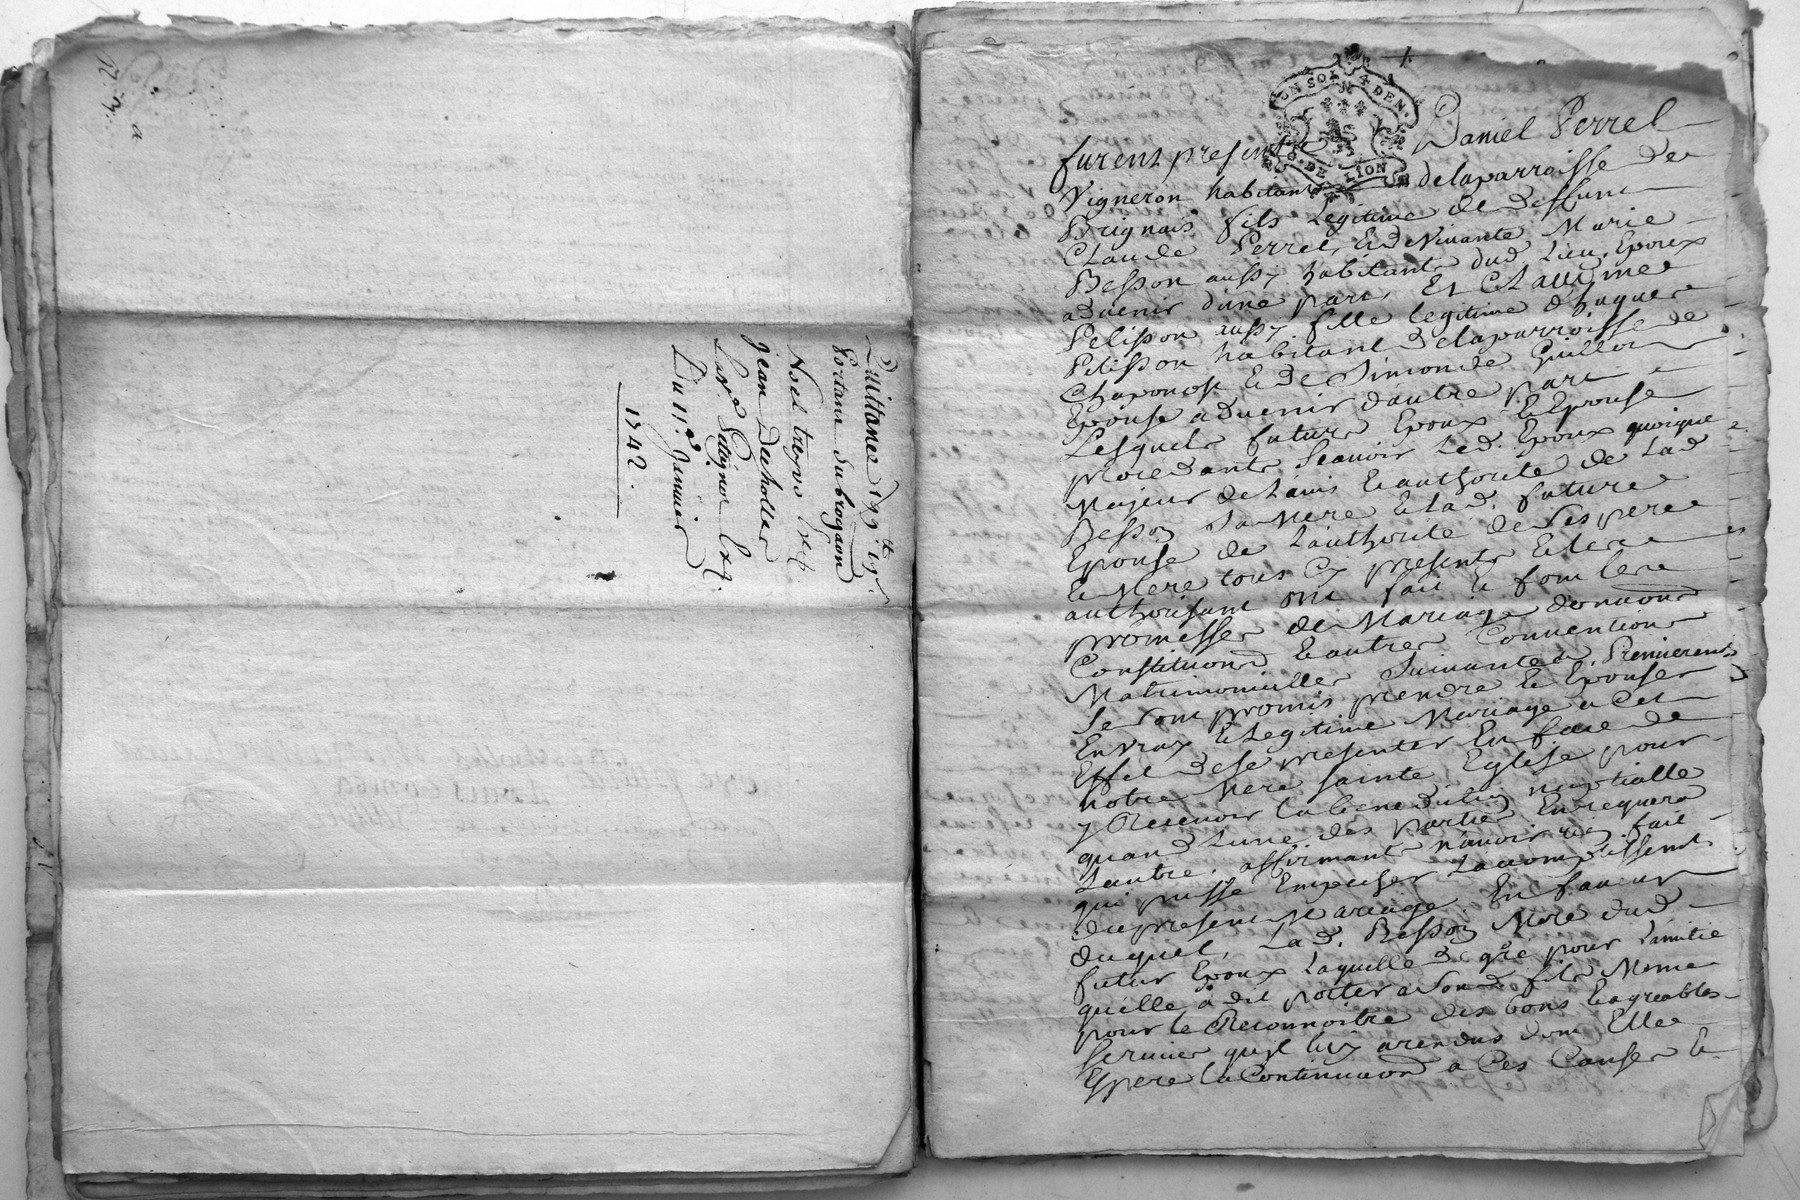 Quittance 199.tt 19.s
Portant subrogaõn
Noel
jean Decholles
Du 11.e Janvier
1742.
UN SOL 4 DEN.
G. DE LION
furent presents Daniel Perrel
Vigneron habitant delaparroisse de
Brignais fils Legitime de deffunt
Claude Perrel, Et de Vivante Marie
Besson aussy habitante dud. Lieu, Epoux
advenir d'une part, Et Claudine
Pelisson aussy fille legitime d'hugues
Pelisson habitant delaparroisse de
Chaponost & de Simonde Guillon
Epouse advenir d'autre part
Lesquels future Epoux & Epouse
procedants Scavoir Led. Epoux quoique
Majeur de L'avis & authorité de Lad
Besson Sa Mere & Lad. future
Epouse de L'authorité de Ses pere
& Mere tous Cy presents &
authorisant ont fait & font les
promesses de Mariage donnaons
Constituons & autres Conventions
Matrimonialles Suivantes. Premierement
Se Sont promis prendre & Epouser
En vray & Legitime Mariage a Cet
Effet de se presenter En face de
notre Mere Sainte Eglise pour
y Recevoir la benediction nuptialle
quand L'une des parties En requera
L'autre, affirmants n'avoir rien fait
qui puisse Empecher L'accomplissement
dupresent Mariage, En faveur
duquel, Lad. Besson Mere dud
futur Epoux Laquelle de gré pour L'amitié
qu'elle a dit porter a Sond. fils Meme
pour le Reconnoitre des bons & agreables
services qu'il luy a rendus dont Elle
Espere la Continuaon a Ces Causes &